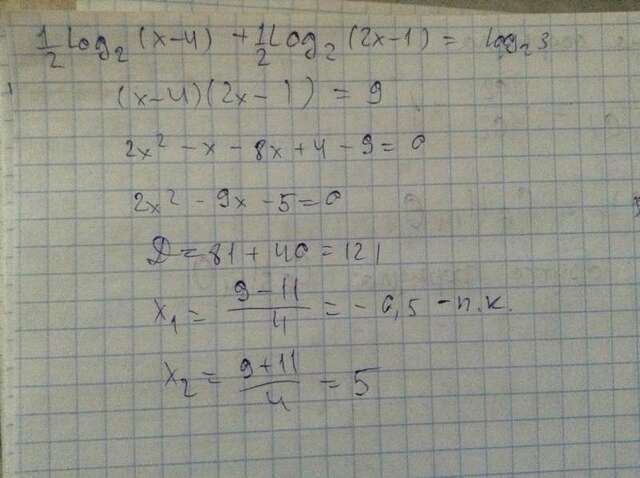 1/2 log₂ (x-4) + 1/2 log₂ (2x-1) = log₂3
(x-4)(2x-1) = 9
2x² - x - 8x + 4 - 9 = 0
2x² - 9x - 5 = 0
D = 81 + 40 = 121
x₁ = (9-11)/4 = -0,5 - п.к.
x₂ = (9+11)/4 = 5